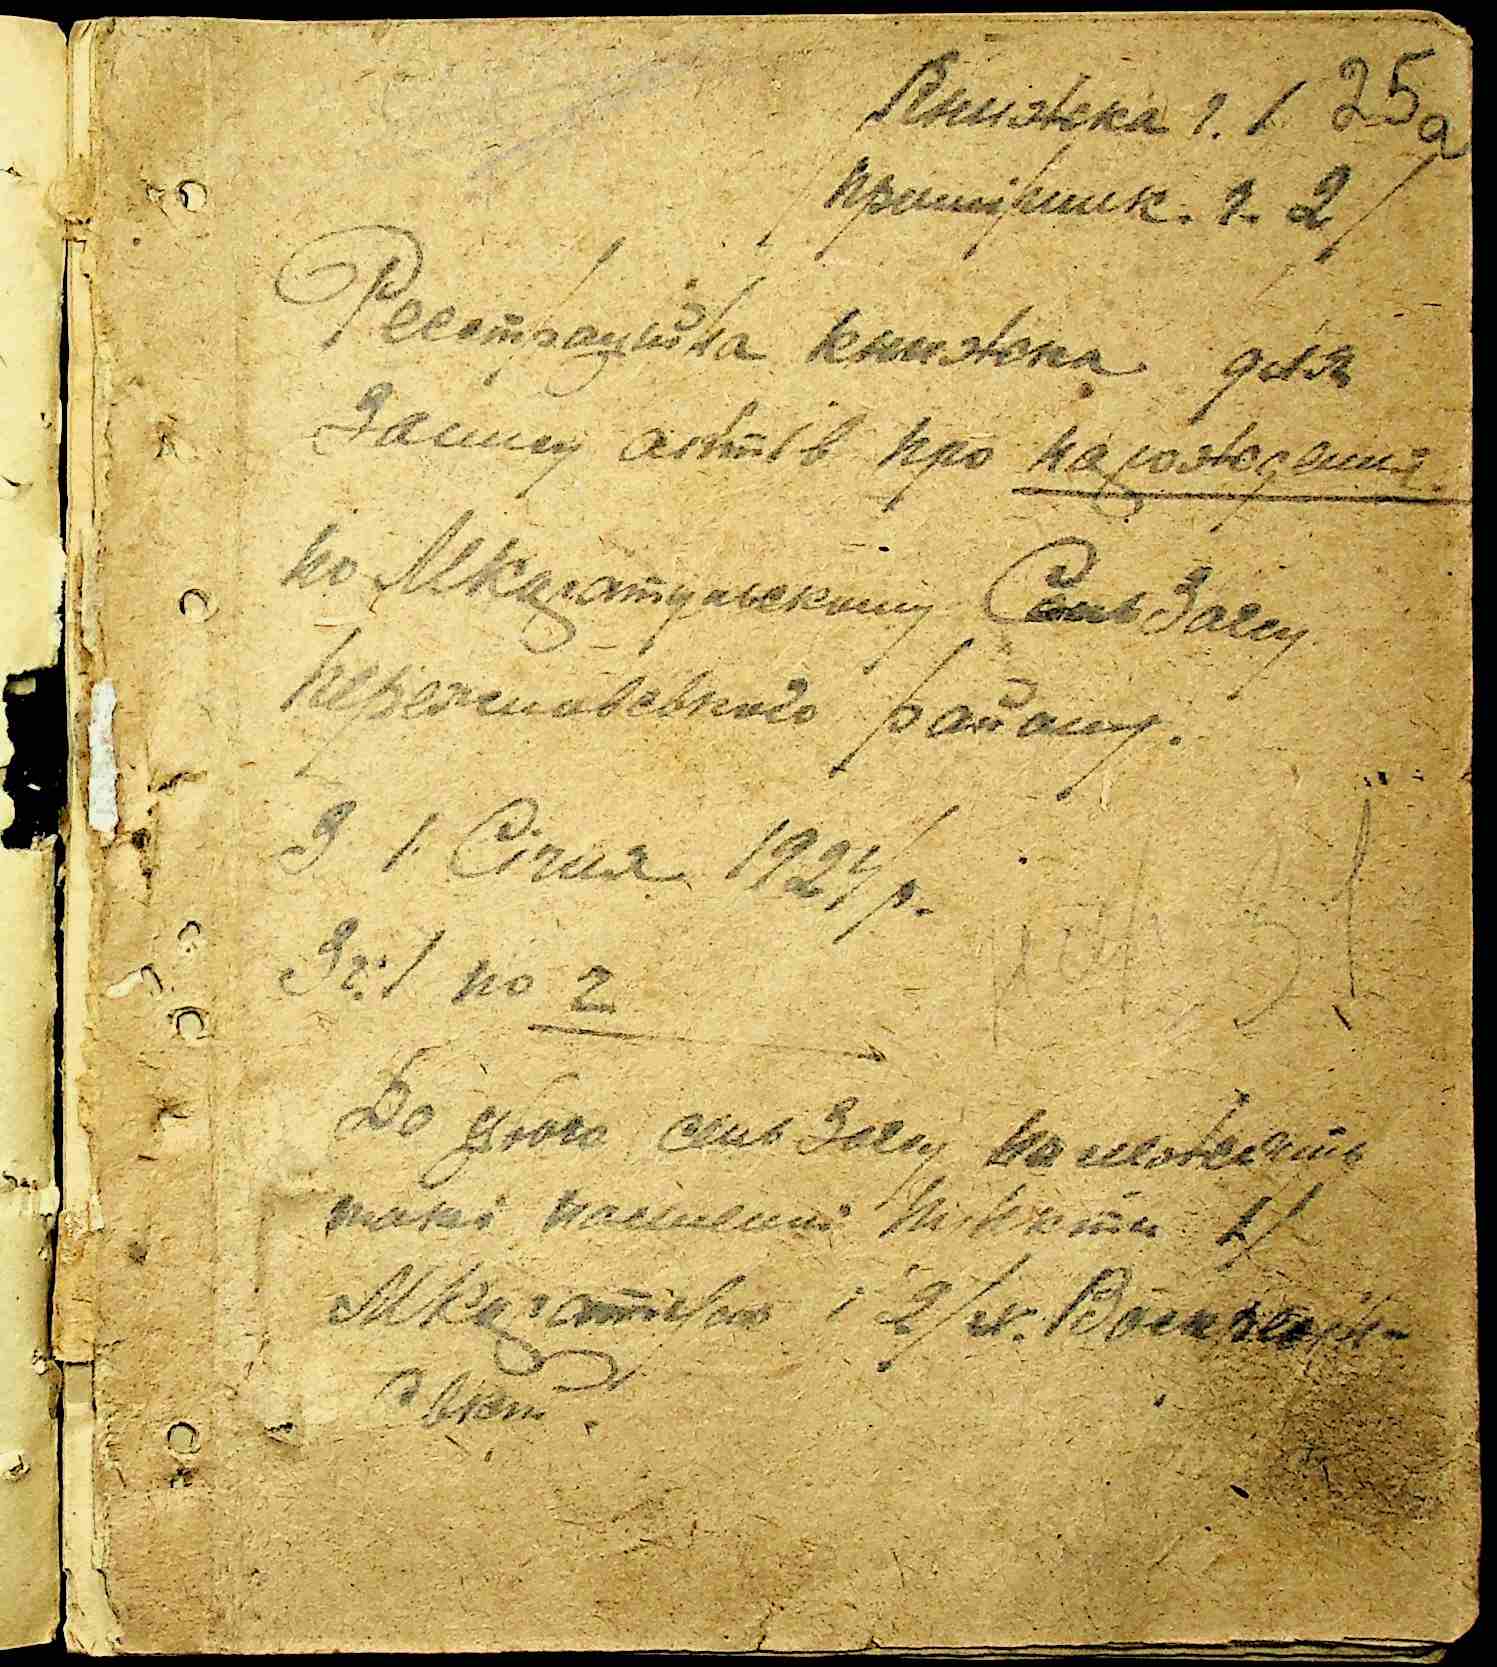 Книжка ч. 1 25а
примірник. ч. 2/
Реєстраційна книжка для
Запису актів про народження.
по Мкаратульському СельЗагу
Переяславського району.
З 1 Січня 1927/р.
З ч. 1 по ч
До цього сельЗагу належать
такі населені пункти 1/
Мкаратуль і 2/ х.